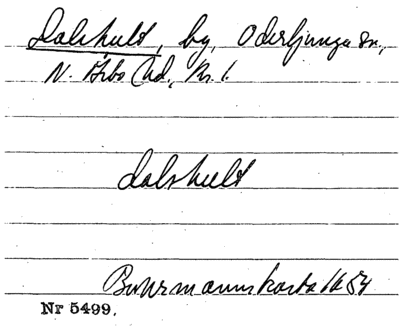 Dalshult, by, Oderljunga sn,
N. Åsbo hd, Kr. l.
dalshult
Buhrmannskarta 1684
Nr 5499.